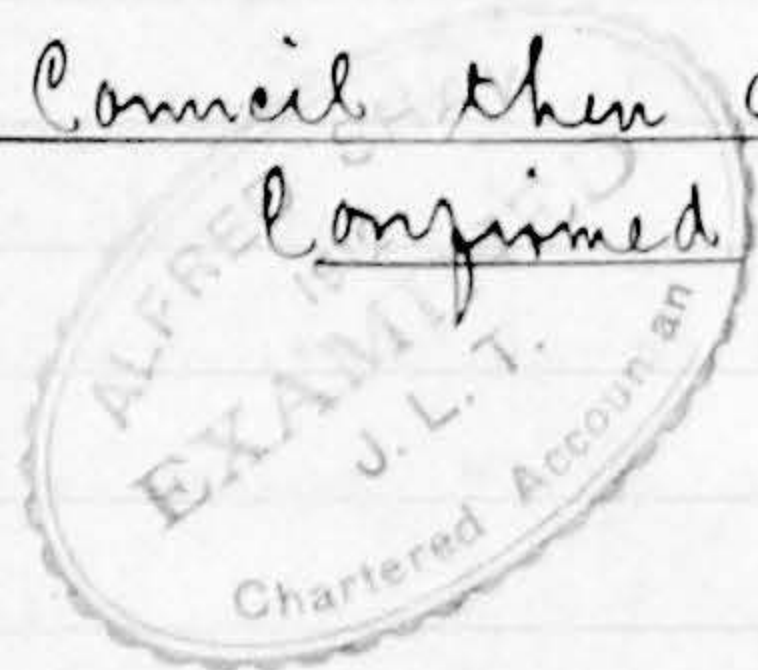 Council then
Confirmed
ALFRED
EXAMINED
J. L. T.
Chartered Accoun an